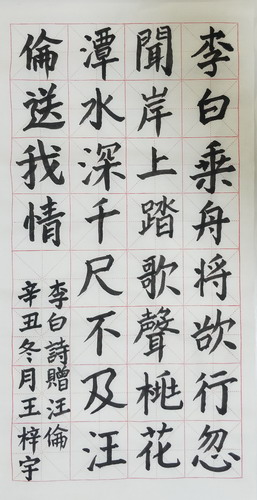 李白乘舟将欲行忽
聞岸上踏歌聲桃花
潭水深千尺不及汪
倫送我情
李白詩贈汪倫
辛丑冬月王梓宇